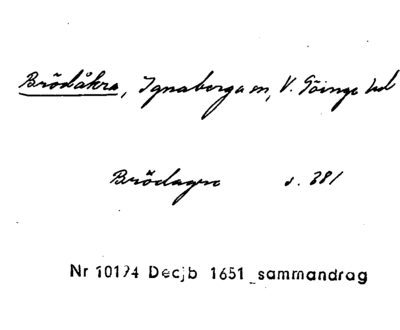 Brödåkra, Ignaberga sn, V. Göinge hd
Brödagre s. 381
Nr 10174 Decjb 1651 sammandrag